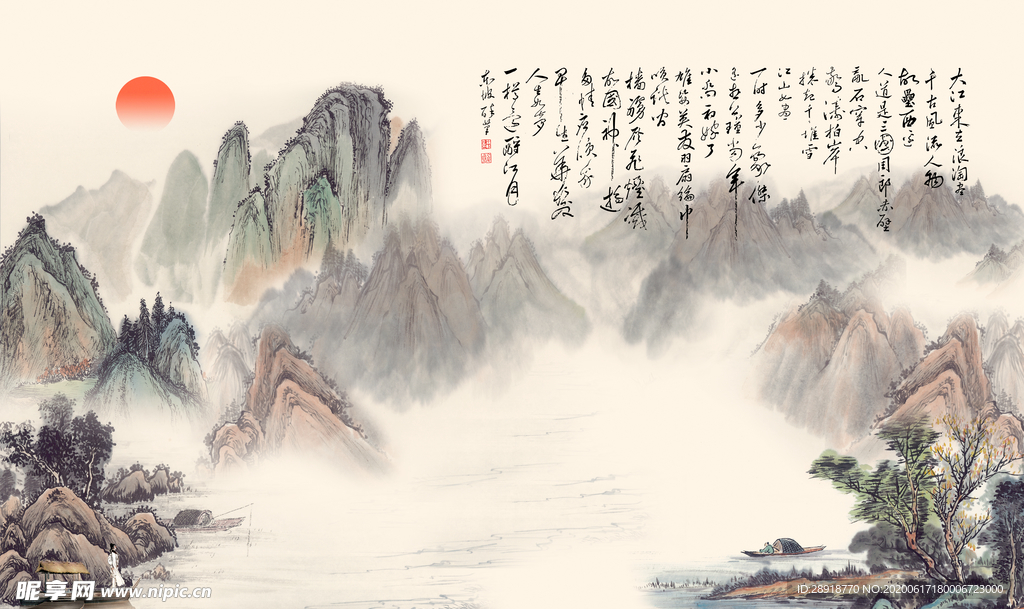 大江東去浪淘盡
千古風流人物
故壘西邊
人道是三國周郎赤壁
亂石穿空
驚濤拍岸
捲起千堆雪
江山如畫
一時多少豪傑
遙想公瑾當年
小喬初嫁了
雄姿英發羽扇綸巾
咲談間
檣櫓灰飛煙滅
故國神遊
多情應笑我
早生華髮
人生如夢
一樽還酹江月
東坡醉筆
昵享网 www.nipic.cn
ID:28918770 NO:20200617180006723000